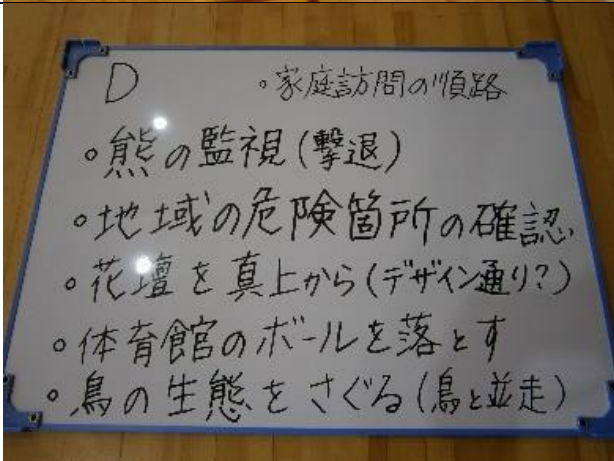 D
。家庭訪問の順路
。熊の監視(撃退)
。地域の危険箇所の確認
。花壇を真上から(デザイン通り?)
。体育館のボールを落とす
。鳥の生態をさぐる(鳥と並走)